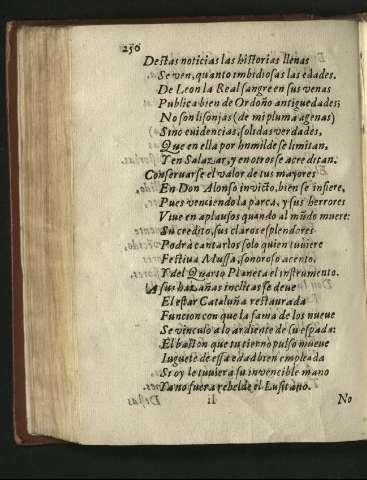 250
Destas noticias las historias llenas
Se ven, quanto imbidiosas las edades.
De Leon la Real sangre en sus venas
Publica bien de Ordoño antiguedades;
No son lisonjas (de mi pluma agenas)
Sino euidencias, solidas verdades,
Que en ella por humilde se limitan,
Y en Salazar, y en otros se acreditan.
Conseruarse el valor de tus mayores
En Don Alonso inuicto, bien se infiere,
Pues venciendo la parca, y sus herrores
Viue en aplausos quando al mũdo muere:
Su credito, sus claros esplendores
Podrà cantarlos solo quien tuuiere
Festiua Mussa, sonoroso acento,
Y del Quarto Planeta el instrumento.
A sus hazañas inclitas se deue
El estar Cataluña restaurada
Funcion con que la fama de los nueue
Se vinculo a lo ardiente de su espada:
El baston que tu tierno pulso mueue
Iuguete de essa edad bien empleada
Si oy le tuuiera su inuencible mano
Ya no fuera rebelde el Lusitano.
Ii No